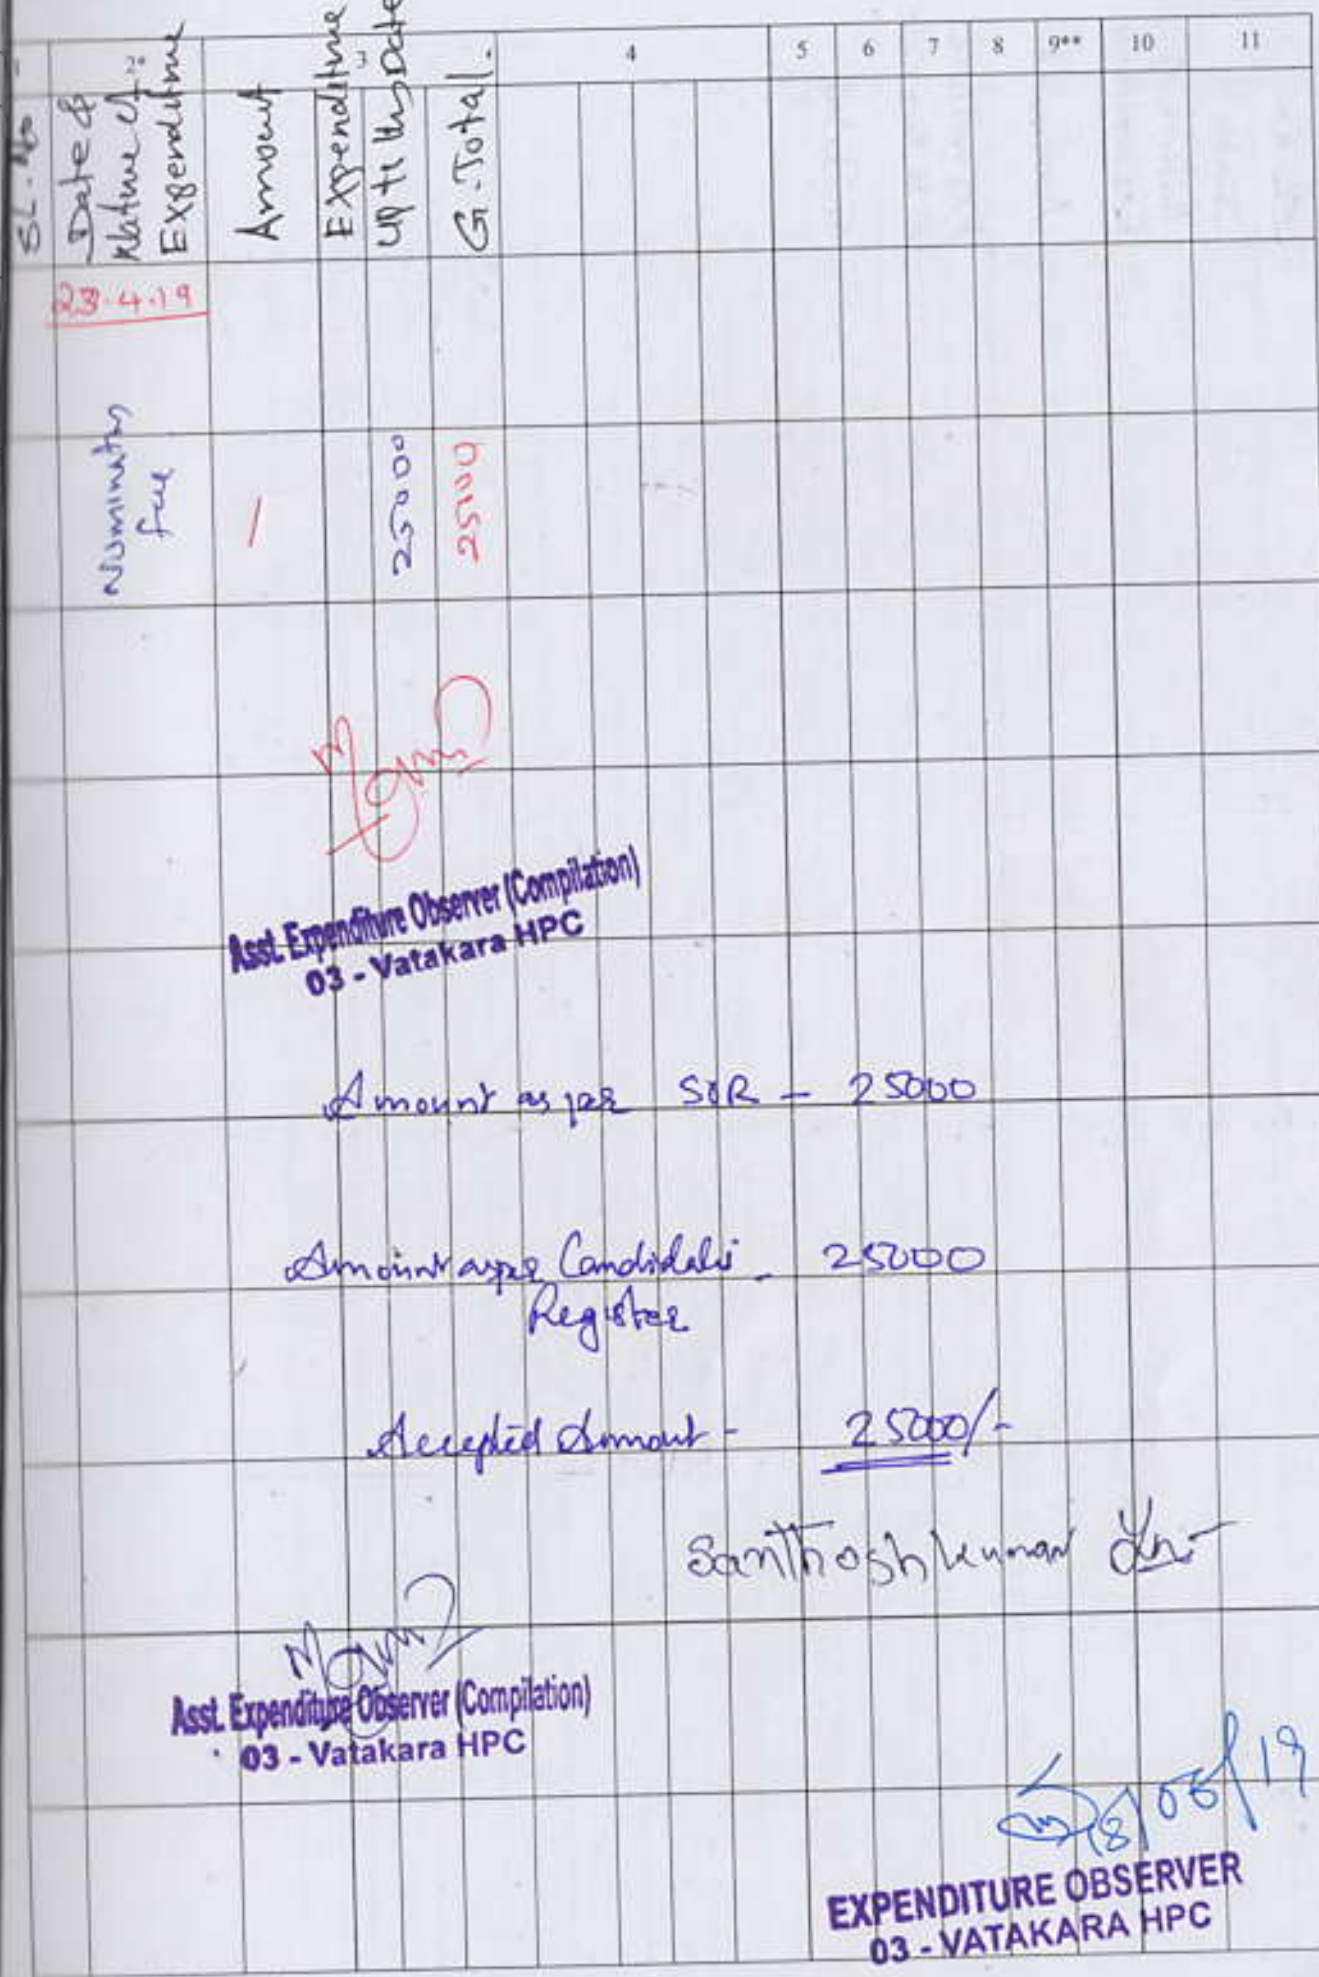 1 2* 3 4 5 6 7 8 9** 10 11
SL. No
Date &
Nature of
Expenditure
Amount
Expenditure
up to this Date
G. Total.
23.4.19
Nomination
fee
/
25000
25000
Asst. Expenditure Observer (Compilation)
03 - Vatakara HPC
Amount as per SOR - 25000
Amount as per Candidate's - 25000
Register
Accepted Amount - 25000/-
Santhosh kumar
Asst. Expenditure Observer (Compilation)
03 - Vatakara HPC
18/06/19
EXPENDITURE OBSERVER
03 - VATAKARA HPC